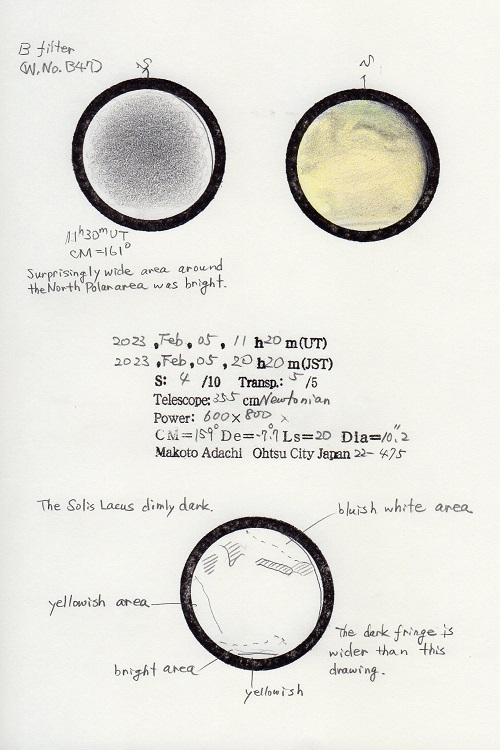 B filter
(W. No. B47)
S
N
11h30mUT
CM=161°
Surprisingly wide area around
the North Polar area was bright.
2023 ,Feb, 05, 11 h20 m(UT)
2023 ,Feb, 05, 20 h20 m(JST)
S: 4 /10 Transp.: 5 /5
Telescope: 355 cm Newtonian
Power: 600× 800 ×
CM=159° De=-7.°7 Ls=20 Dia=10."2
Makoto Adachi Ohtsu City Japan 22-475
The Solis Lacus dimly dark.
bluish white area
yellowish area
The dark fringe is
wider than this
drawing.
bright area
yellowish